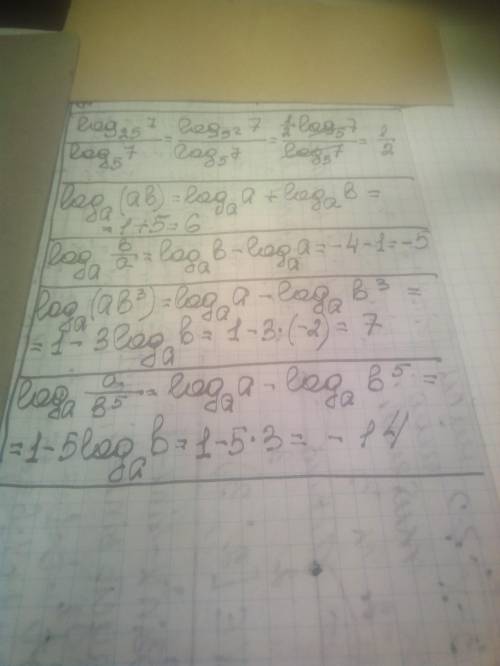 log₂₅7/log₅7 = log₅²7/log₅7 = ½log₅7/log₅7 = 1/2
logₐ(ab) = logₐa + logₐb =
= 1+5 = 6
logₐ b/a = logₐb - logₐa = -4-1 = -5
logₐ(ab³) = logₐa - logₐb³ =
= 1 - 3logₐb = 1-3·(-2) = 7
logₐ a/b⁵ = logₐa - logₐb⁵ =
= 1-5logₐb = 1-5·3 = -14